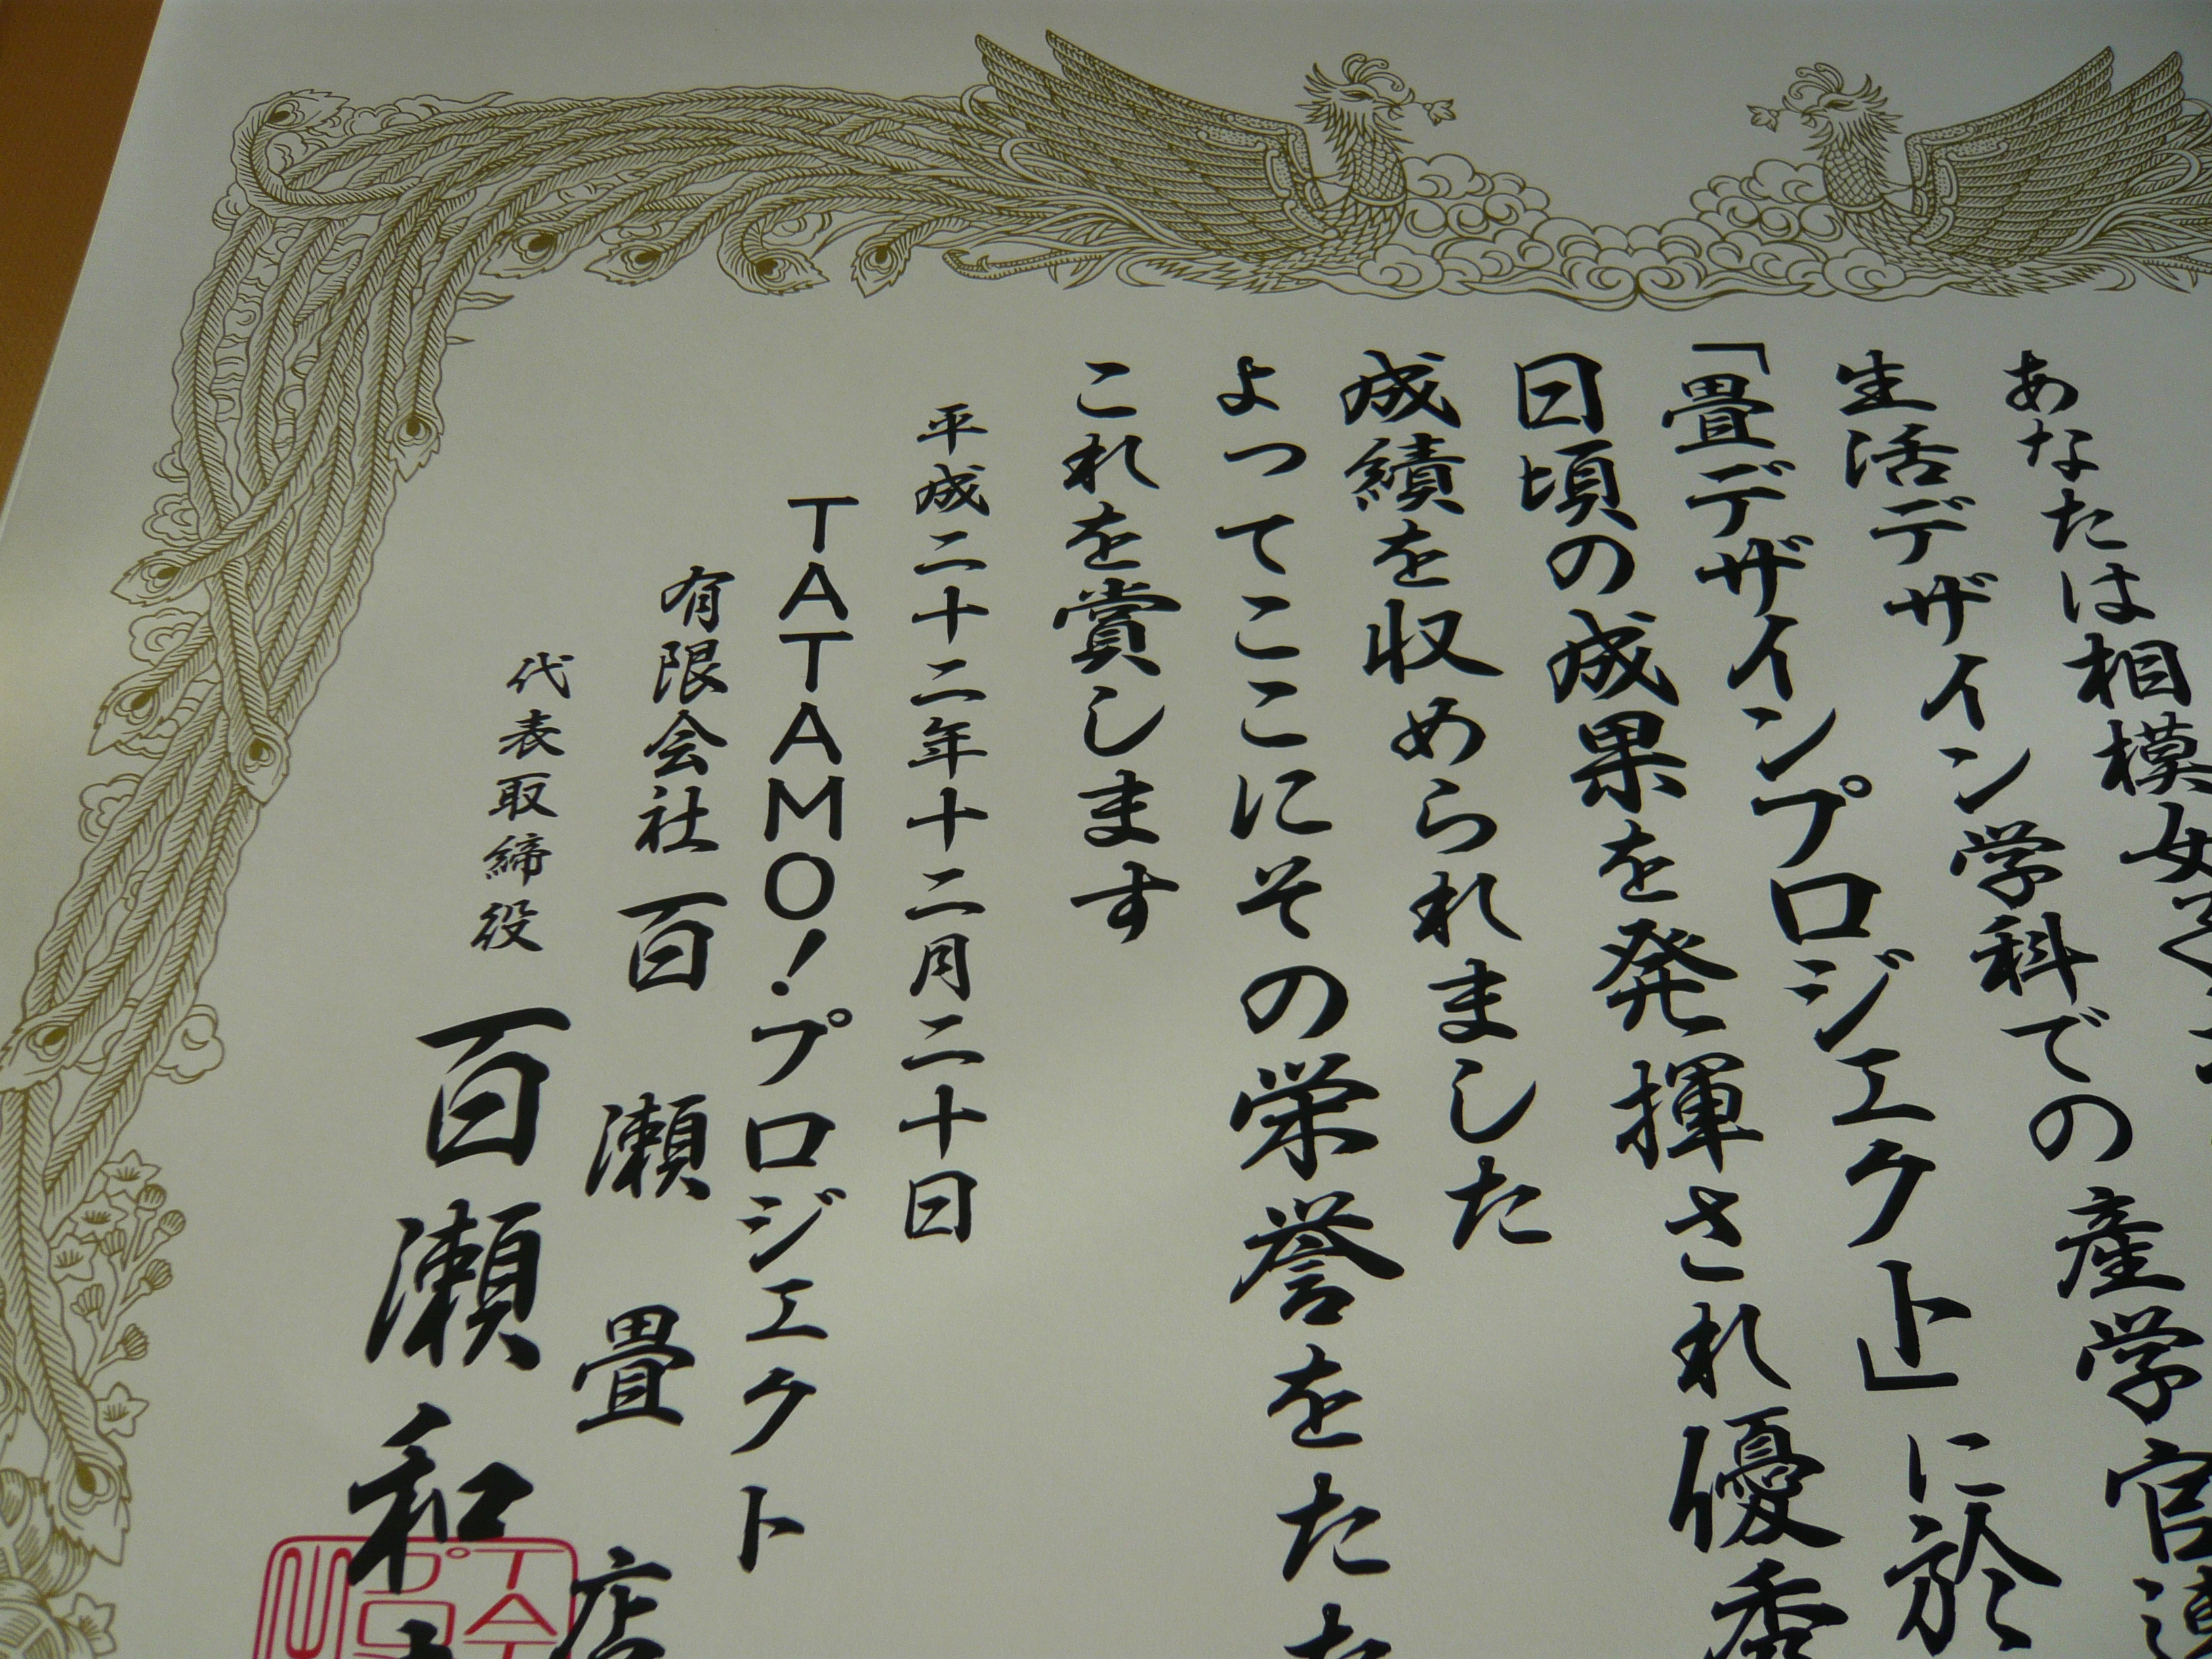 あなたは相模女子
生活デザイン学科での産学官連
「畳デザインプロジェクト」に於
日頃の成果を発揮され優秀
成績を収められました
よってここにその栄誉をたた
これを賞します
平成二十二年十二月二十日
TATAMO!プロジェクト
有限会社百瀬畳店
代表取締役 百瀬和